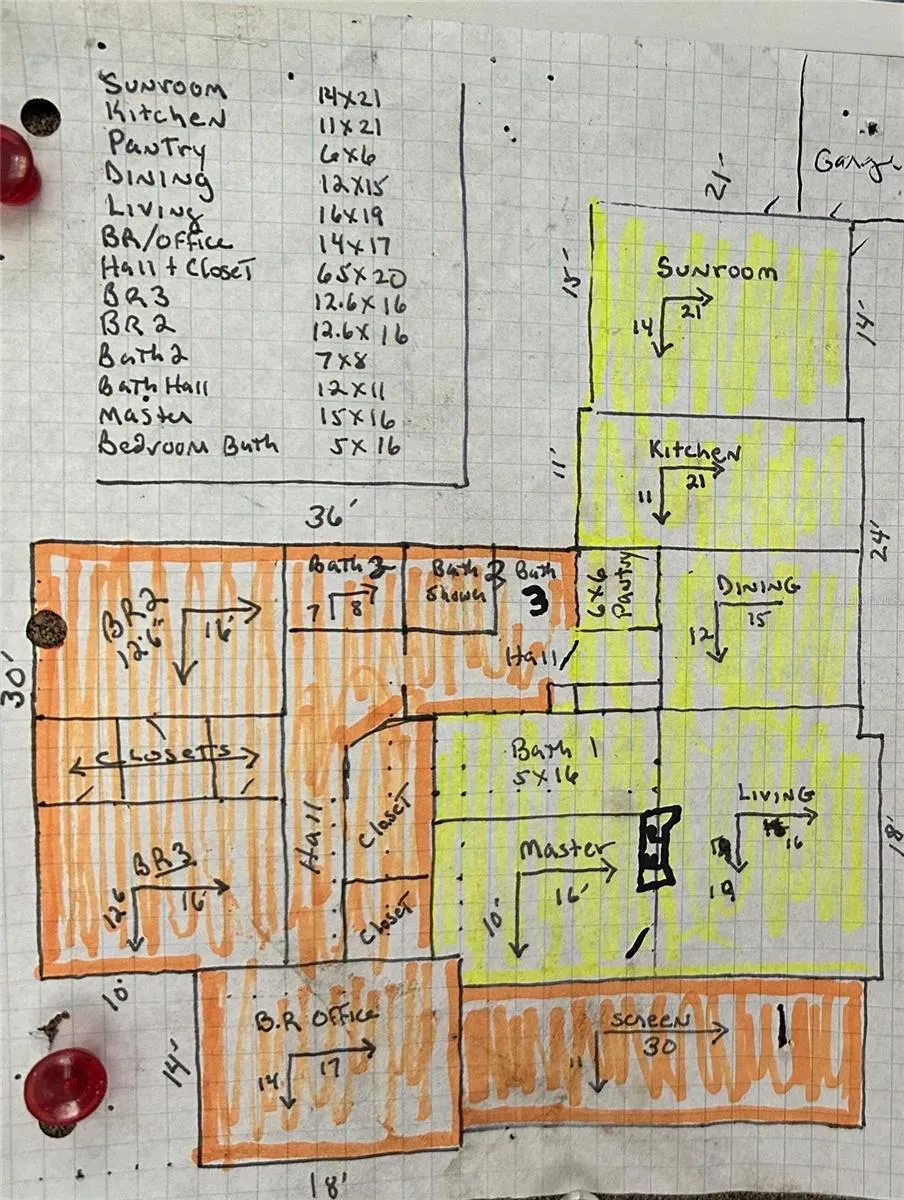 Sunroom 14x21
Kitchen 11x21
Pantry 6x6
DINING 12x15
Living 16x19
BR/office 14x17
Hall + Closet 65x20
BR3 12.6x16
BR2 12.6x16
Bath2 7x8
Bath Hall 12x11
Master 15x16
Bedroom Bath 5x16
Garage
21'
15'
Sunroom
14 21
14'
11'
Kitchen
11 21
24'
36'
30'
BR2
12'6" 16'
Bath 2
7 8
Bath 2
Shower
Bath
3
6x6
Pantry
DINING
12 15
Hall
CLOSETS
Hall
Closet
Closet
Bath 1
5x16
LIVING
16
19
18'
Master
10' 16'
BR3
126 16'
10'
B.R OFFICE
14 17
14'
18'
SCREEN
11 30